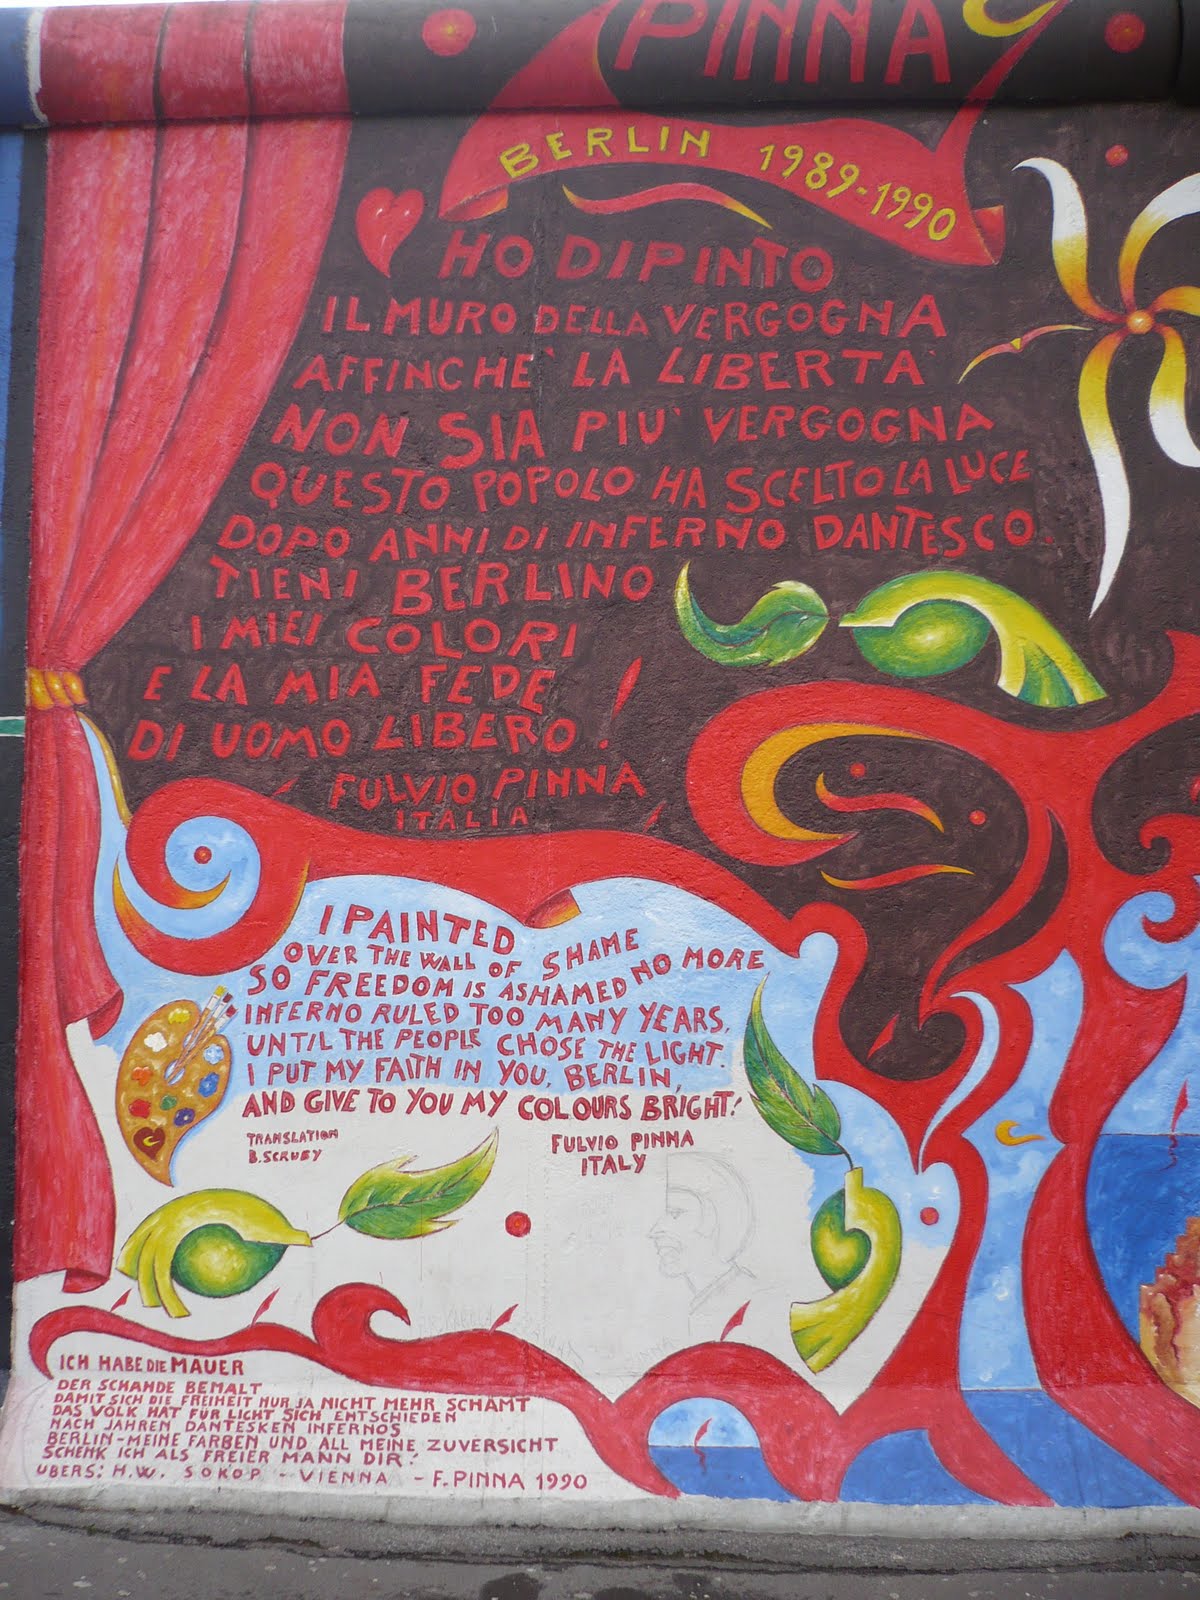 PINNA
BERLIN 1989-1990
HO DIPINTO
IL MURO DELLA VERGOGNA
AFFINCHE` LA LIBERTA`
NON SIA PIU` VERGOGNA
QUESTO POPOLO HA SCELTO LA LUCE
DOPO ANNI DI INFERNO DANTESCO.
TIENI BERLINO
I MIEI COLORI
E LA MIA FEDE
DI UOMO LIBERO!
FULVIO PINNA
ITALIA
I PAINTED
OVER THE WALL OF SHAME
SO FREEDOM IS ASHAMED NO MORE
INFERNO RULED TOO MANY YEARS,
UNTIL THE PEOPLE CHOSE THE LIGHT.
I PUT MY FAITH IN YOU, BERLIN,
AND GIVE TO YOU MY COLOURS BRIGHT!
TRANSLATION
B. SCRUBY
FULVIO PINNA
ITALY
ICH HABE DIE MAUER
DER SCHANDE BEMALT
DAMIT SICH DIE FREIHEIT NUR JA NICHT MEHR SCHÄMT
DAS VOLK HAT FÜR LICHT SICH ENTSCHIEDEN
NACH JAHREN DANTESKEN INFERNOS
BERLIN-MEINE FARBEN UND ALL MEINE ZUVERSICHT
SCHENK ICH ALS FREIER MANN DIR!
UBERS: H.W. SOKOP - VIENNA - F. PINNA 1990